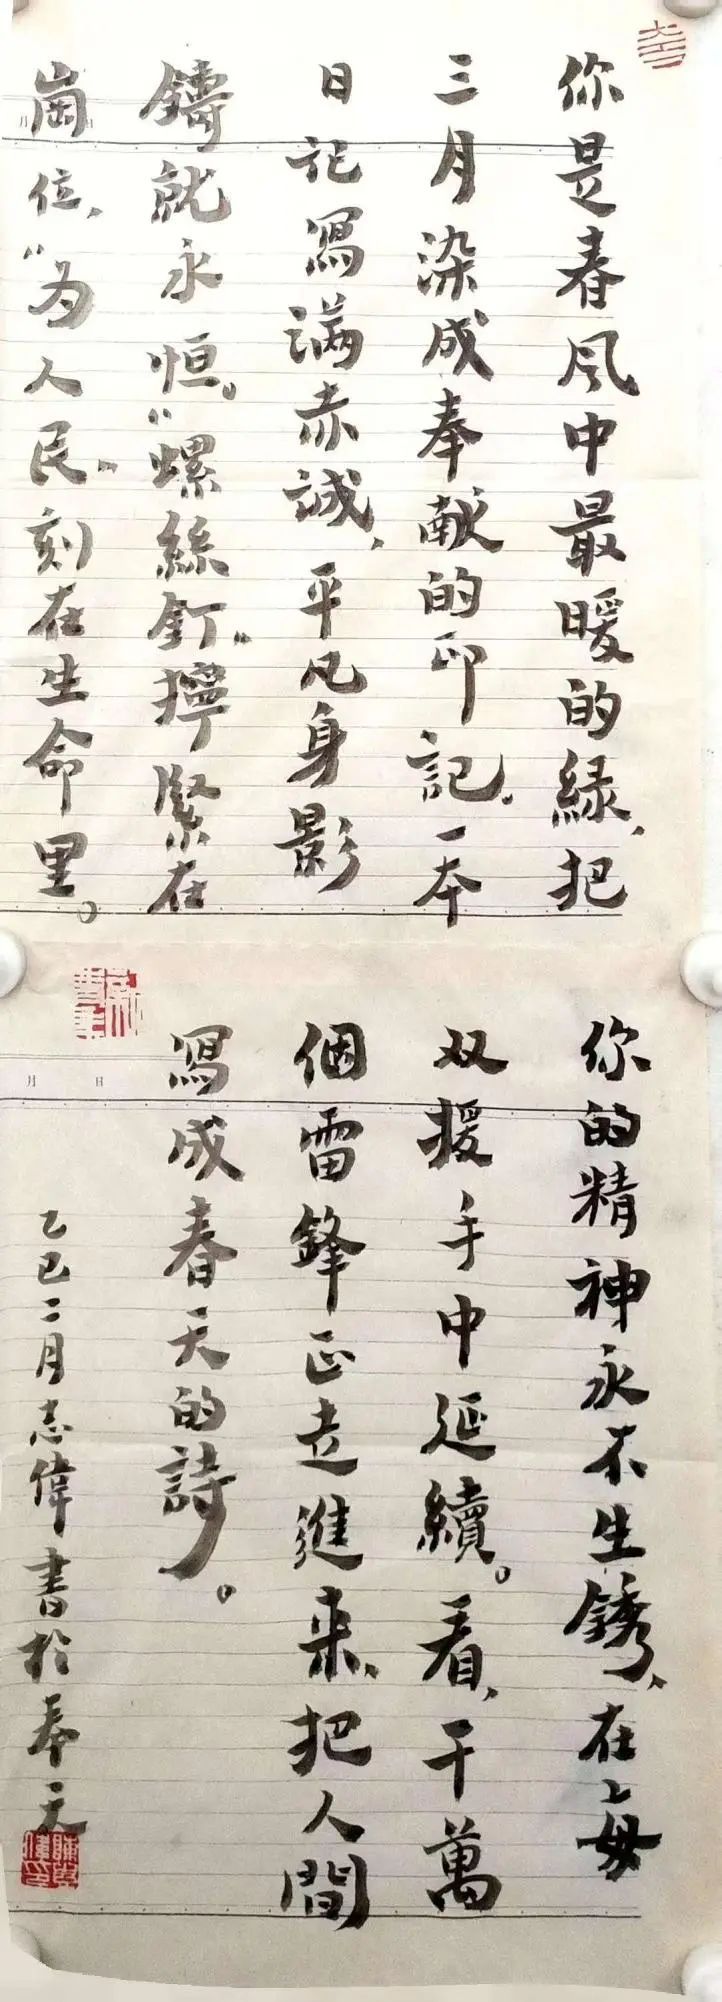 你是春风中最暖的緑、把
三月染成奉献的印記。一本
日記寫满赤誠、平凡身影
鑄就永恒。“螺絲釘”擰緊在
崗位、“为人民”刻在生命里。
月 日
你的精神永不生锈、在每一
双援手中延續。看、千萬
個雷鋒正走進来、把人間
寫成春天的詩。
月 日
乙巳二月志偉書於奉天